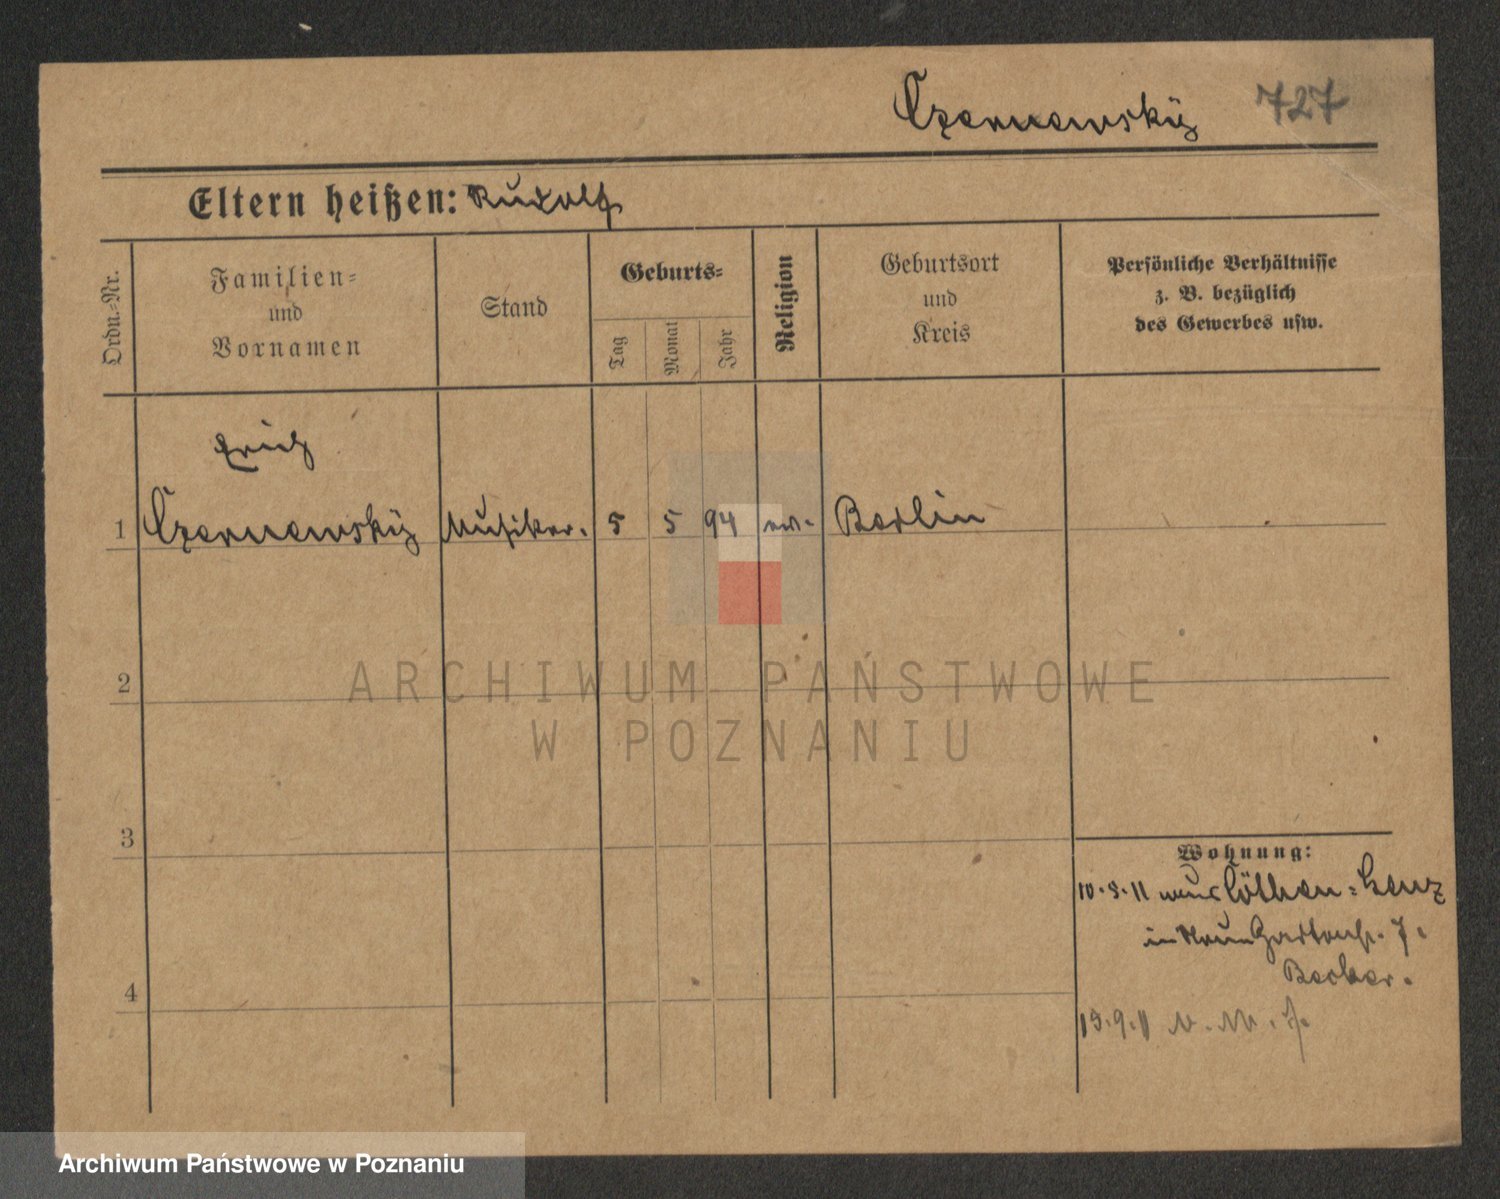 Czarnewsky 727
Eltern heißen: Rudolf
Ordn.-Nr.
Familien-
und
Vornamen
Stand
Geburts-
Tag
Monat
Jahr
Religion
Geburtsort
und
Kreis
Persönliche Verhältnisse
z. B. bezüglich
des Gewerbes usw.
Erich
1 Czarnewsky Musiker. 5 5 94 ev. Berlin
2
ARCHIWUM PAŃSTWOWE
W POZNANIU
3
Wohnung:
10.5.11 Cöthen
7.
4
Becker.
15.9.11
Archiwum Państwowe w Poznaniu